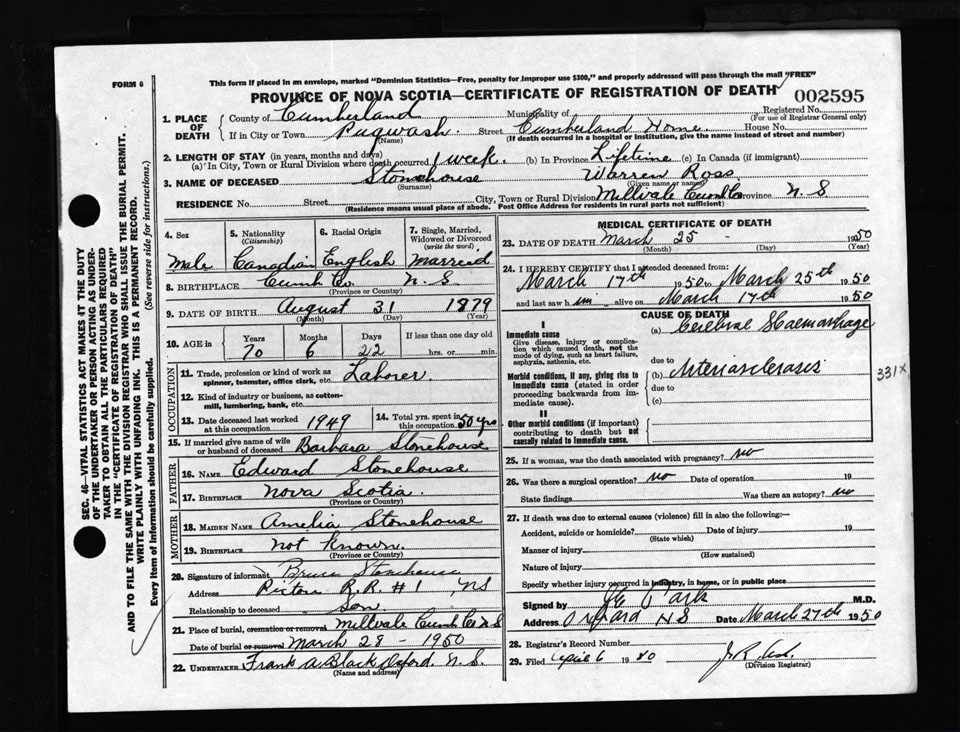 This form if placed in an envelope, marked "Dominion Statistics—Free, penalty for improper use $300," and properly addressed will pass through the mail "FREE"
FORM 6
PROVINCE OF NOVA SCOTIA—CERTIFICATE OF REGISTRATION OF DEATH
002595
SEC. 46—VITAL STATISTICS ACT MAKES IT THE DUTY
OF THE UNDERTAKER OR PERSON ACTING AS UNDER-
TAKER TO OBTAIN ALL THE PARTICULARS REQUIRED
IN THE "CERTIFICATE OF REGISTRATION OF DEATH"
AND TO FILE THE SAME WITH THE DIVISION REGISTRAR WHO SHALL ISSUE THE BURIAL PERMIT.
WRITE PLAINLY WITH UNFADING INK. THIS IS A PERMANENT RECORD.
Every item of Information should be carefully supplied. (See reverse side for instructions.)
1. PLACE OF DEATH
County of Cumberland Municipality of Registered No.
(For use of Registrar General only)
If in City or Town Pugwash. Street Cumberland Home. House No.
(Name) (If death occurred in a hospital or institution, give the name instead of street and number)
2. LENGTH OF STAY (in years, months and days)
(a) In City, Town or Rural Division where death occurred 1 week. (b) In Province Lifetime (c) In Canada (if immigrant)
3. NAME OF DECEASED Stonehouse Warren Ross
(Surname) (Given name or names)
RESIDENCE No. Street City, Town or Rural Division Millvale Cumb Co Province N.S
(Residence means usual place of abode. Post Office Address for residents in rural parts not sufficient)
4. Sex Male
5. Nationality (Citizenship) Canadian
6. Racial Origin English
7. Single, Married, Widowed or Divorced (write the word) Married
8. BIRTHPLACE Cumb Co. N.S
(Province or Country)
9. DATE OF BIRTH August 31 1879
(Month) (Day) (Year)
10. AGE in Years 70 Months 6 Days 22 If less than one day old
hrs. or min.
OCCUPATION
11. Trade, profession or kind of work as spinner, teamster, office clerk, etc. Laborer.
12. Kind of industry or business, as cotton-mill, lumbering, bank, etc.
13. Date deceased last worked at this occupation 1949
14. Total yrs. spent in this occupation 50 yrs
15. If married give name of wife or husband of deceased Barbara Stonehouse
FATHER
16. NAME Edward Stonehouse
17. BIRTHPLACE Nova Scotia.
(Province or Country)
MOTHER
18. MAIDEN NAME Amelia Stonehouse
19. BIRTHPLACE Not Known.
(Province or Country)
20. Signature of informant Bruce Stonehouse
Address Pictou R.R. #1, NS
Relationship to deceased Son
21. Place of burial, cremation or removal Millvale Cumb Co N S
Date of burial or removal March 28 - 1950
22. UNDERTAKER Frank A Black Oxford N.S.
(Name and address)
MEDICAL CERTIFICATE OF DEATH
23. DATE OF DEATH March 25 - 1950
(Month) (Day) (Year)
24. I HEREBY CERTIFY that I attended deceased from:
March 17th 1950 to March 25th 1950
and last saw h im alive on March 17th 1950
CAUSE OF DEATH
I
Immediate cause
Give disease, injury or complication which caused death, not the mode of dying, such as heart failure, asphyxia, asthenia, etc.
(a) Cerebral Haemorrhage
due to
Morbid conditions, if any, giving rise to immediate cause (stated in order proceeding backwards from immediate cause).
(b) Arteriosclerosis
due to
(c)
331X
II
Other morbid conditions (if important) contributing to death but not causally related to immediate cause.
25. If a woman, was the death associated with pregnancy? no
26. Was there a surgical operation? no Date of operation 19
State findings Was there an autopsy? no
27. If death was due to external causes (violence) fill in also the following:—
Accident, suicide or homicide? Date of injury 19
(State which)
Manner of injury
(How sustained)
Nature of injury
Specify whether injury occurred in industry, in home, or in public place
Signed by Park M.D.
Address Oxford NS Date March 27th 1950
28. Registrar's Record Number
29. Filed April 6 1950
(Division Registrar)